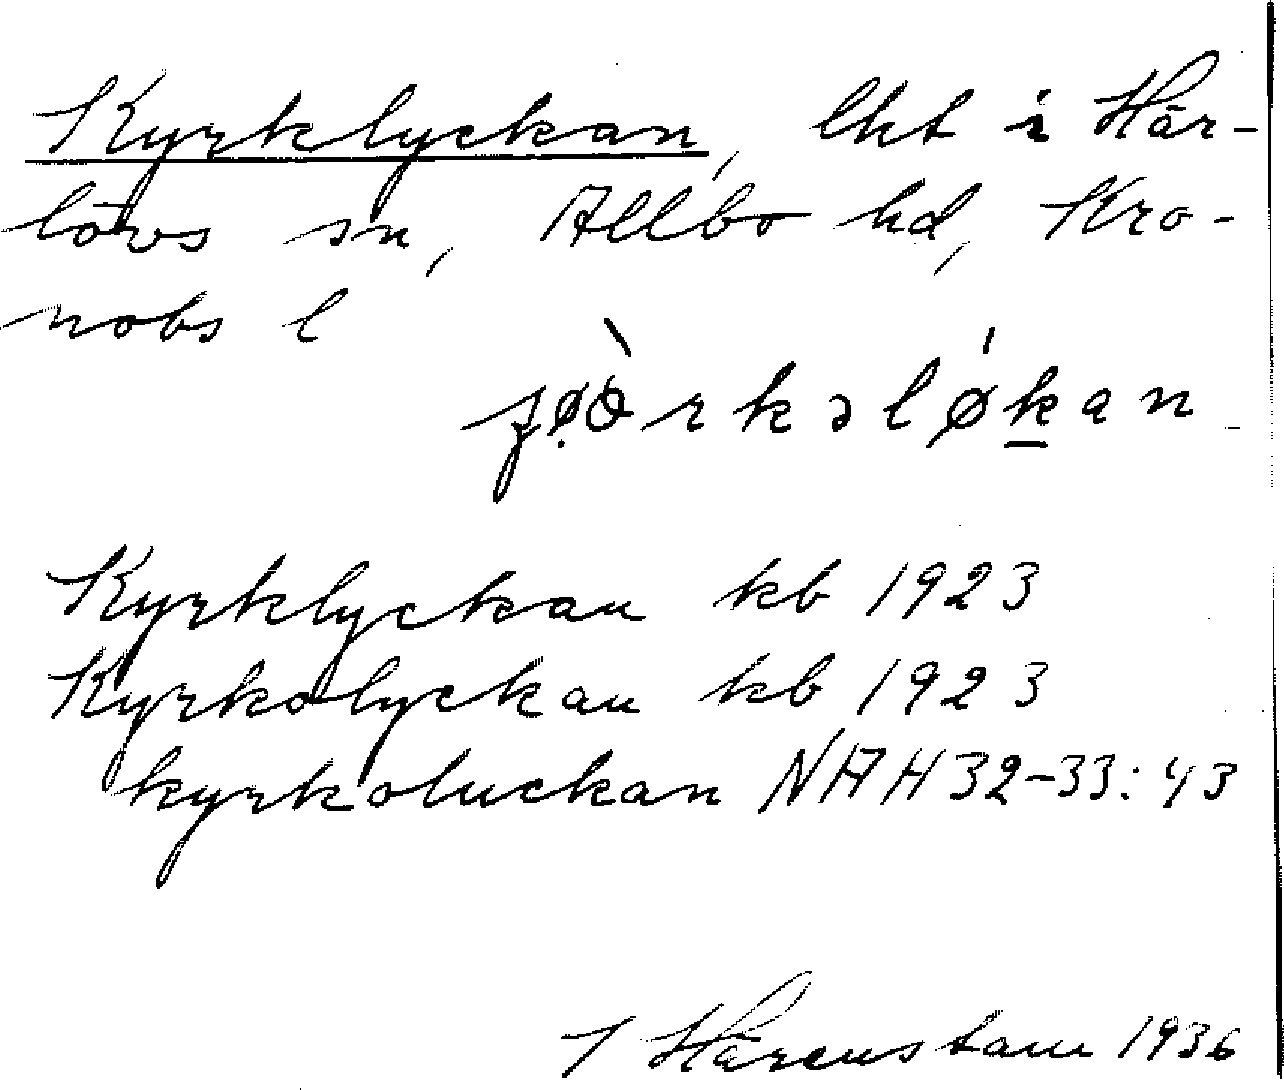 Kyrklyckan, lht i Här-
lövs sn, Allbo hd, Kro-
nobs l
Kyrklyckan kb 1923
Kyrkolyckan kb 1923
kyrkoluckan NAH 32-33:43
J Härenstam 1936